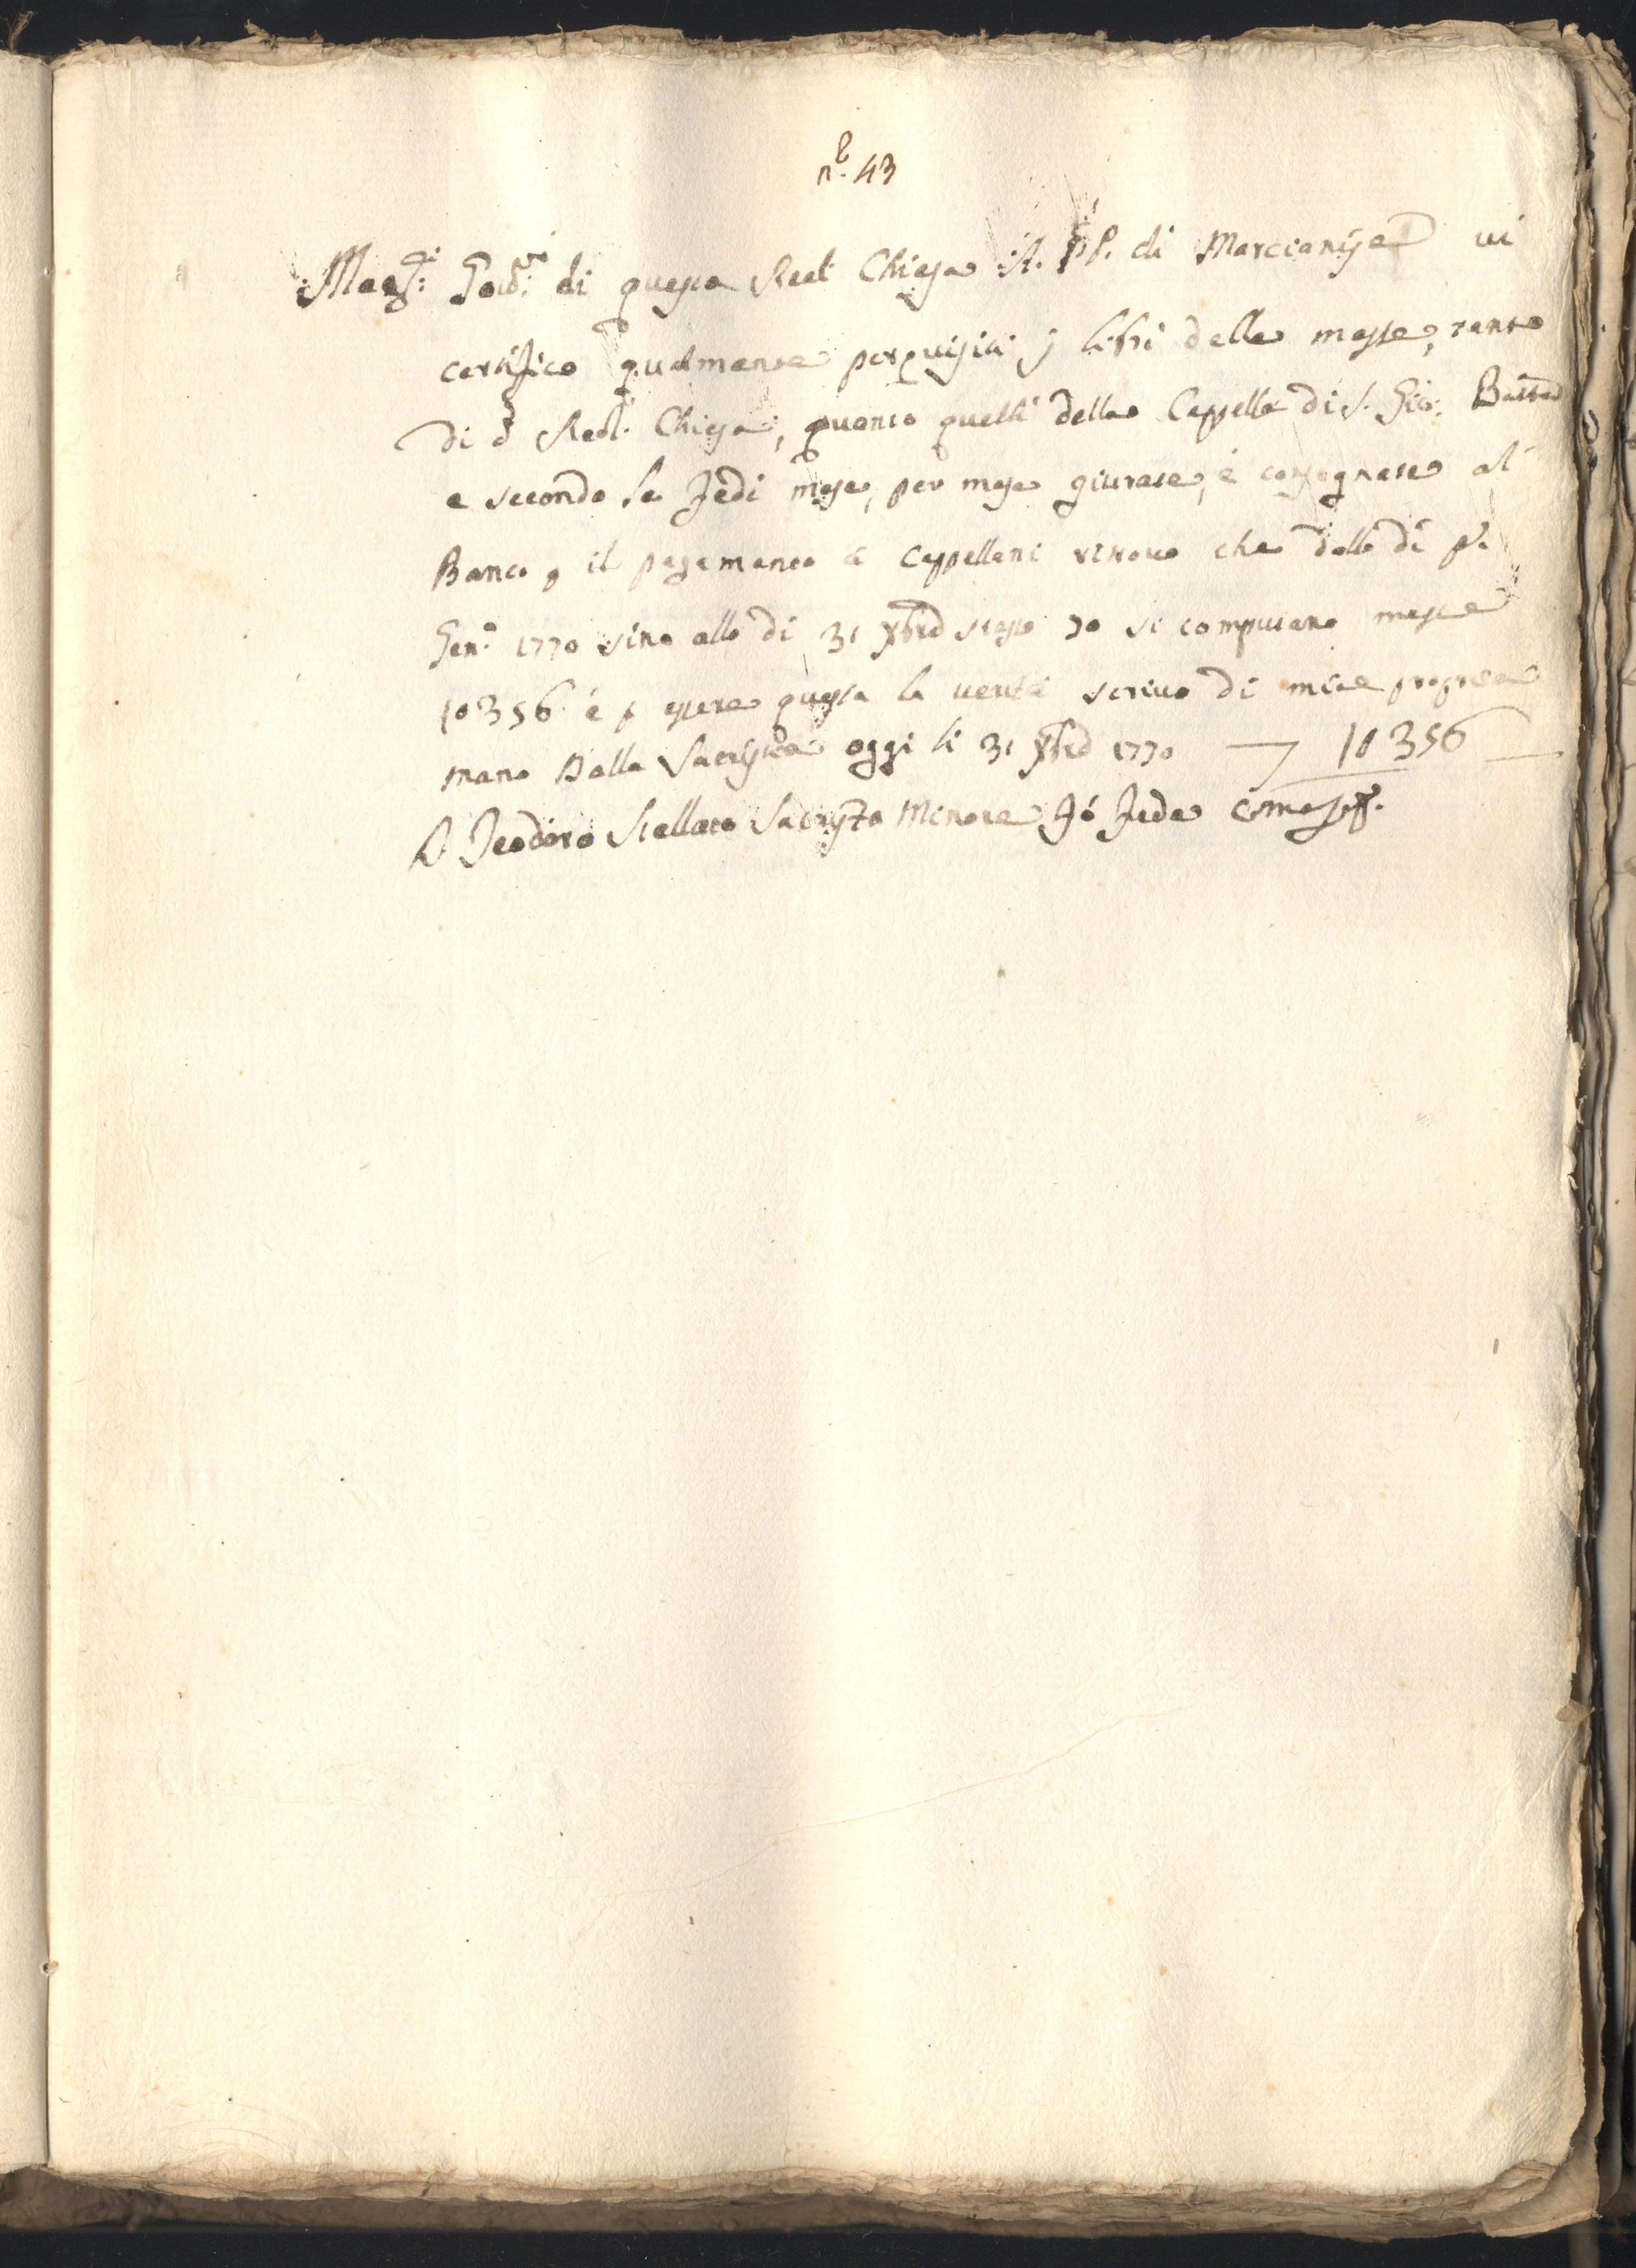 n.º 43
Mag.ci Gov.ri di questa Real Chiesa A. P. P. di Marcianise vi
certifico qualmente perquisiti j libri delle messe, tanto
di d.ª Real Chiesa, quanto quelli della Cappella di S. Gio: Batta
e secondo le fedi mese, per mese giurate, è consegnate al
Banco p il pagamento à Cappellani ritrovo che dallo dì p.º
Gen.º 1770 sino allo dì 31 Xbre stesso 70 si computano messe
10356 è p essere questa la verità scrivo di mia propria
mano Dalla Sacristia oggi li 31 Xbre 1770 — 10356
D. Teodoro Stellato Sacrista Minore fò fede come sop.ª